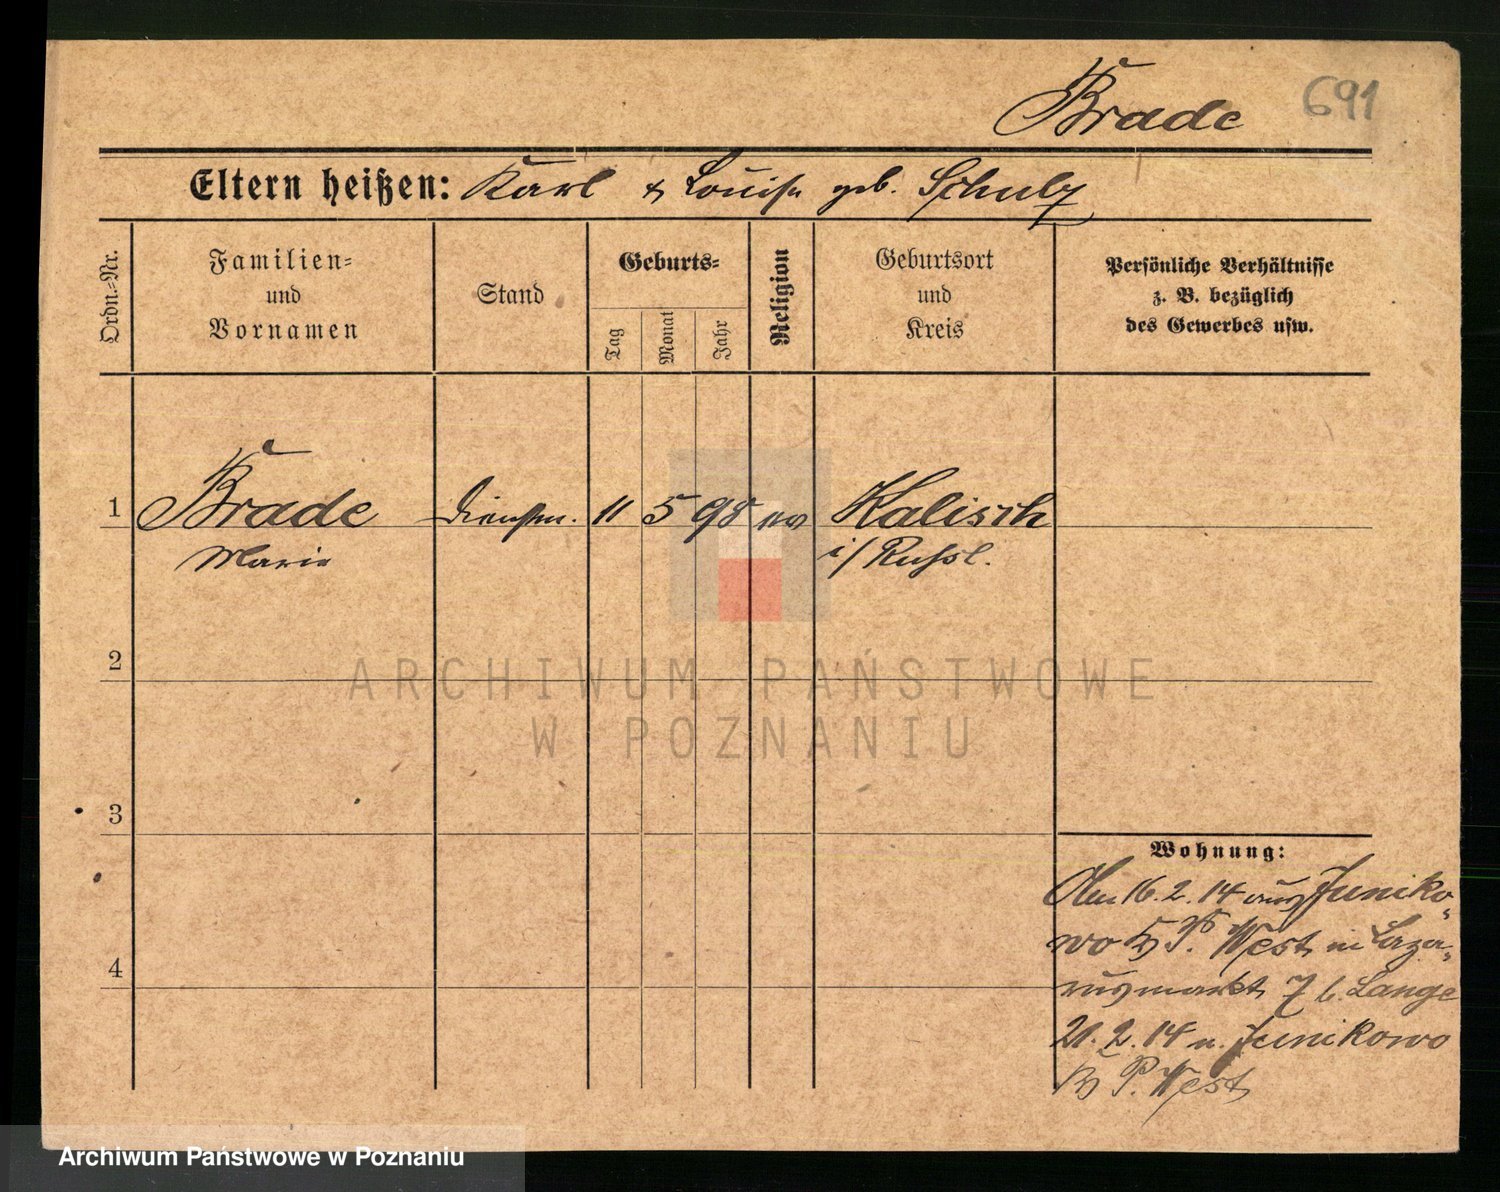 691
Brade
Eltern heißen: Karl & Louise geb. Schulz
Ordn.-Nr.
Familien-
und
Vornamen
Stand
Geburts-
Tag
Monat
Jahr
Religion
Geburtsort
und
Kreis
Persönliche Verhältnisse
z. B. bezüglich
des Gewerbes usw.
1 Brade Dienstm. 11 5 98 ev Kalisch
Marie i/Russl.
2
ARCHIWUM PAŃSTWOWE
W POZNANIU
3
Wohnung:
4
16.2.14 aus Juniko-
wo Kr P. West in Laza-
rusmarkt 7 b. Lange
21.2.14 n. Junikowo
Kr P. West
Archiwum Państwowe w Poznaniu